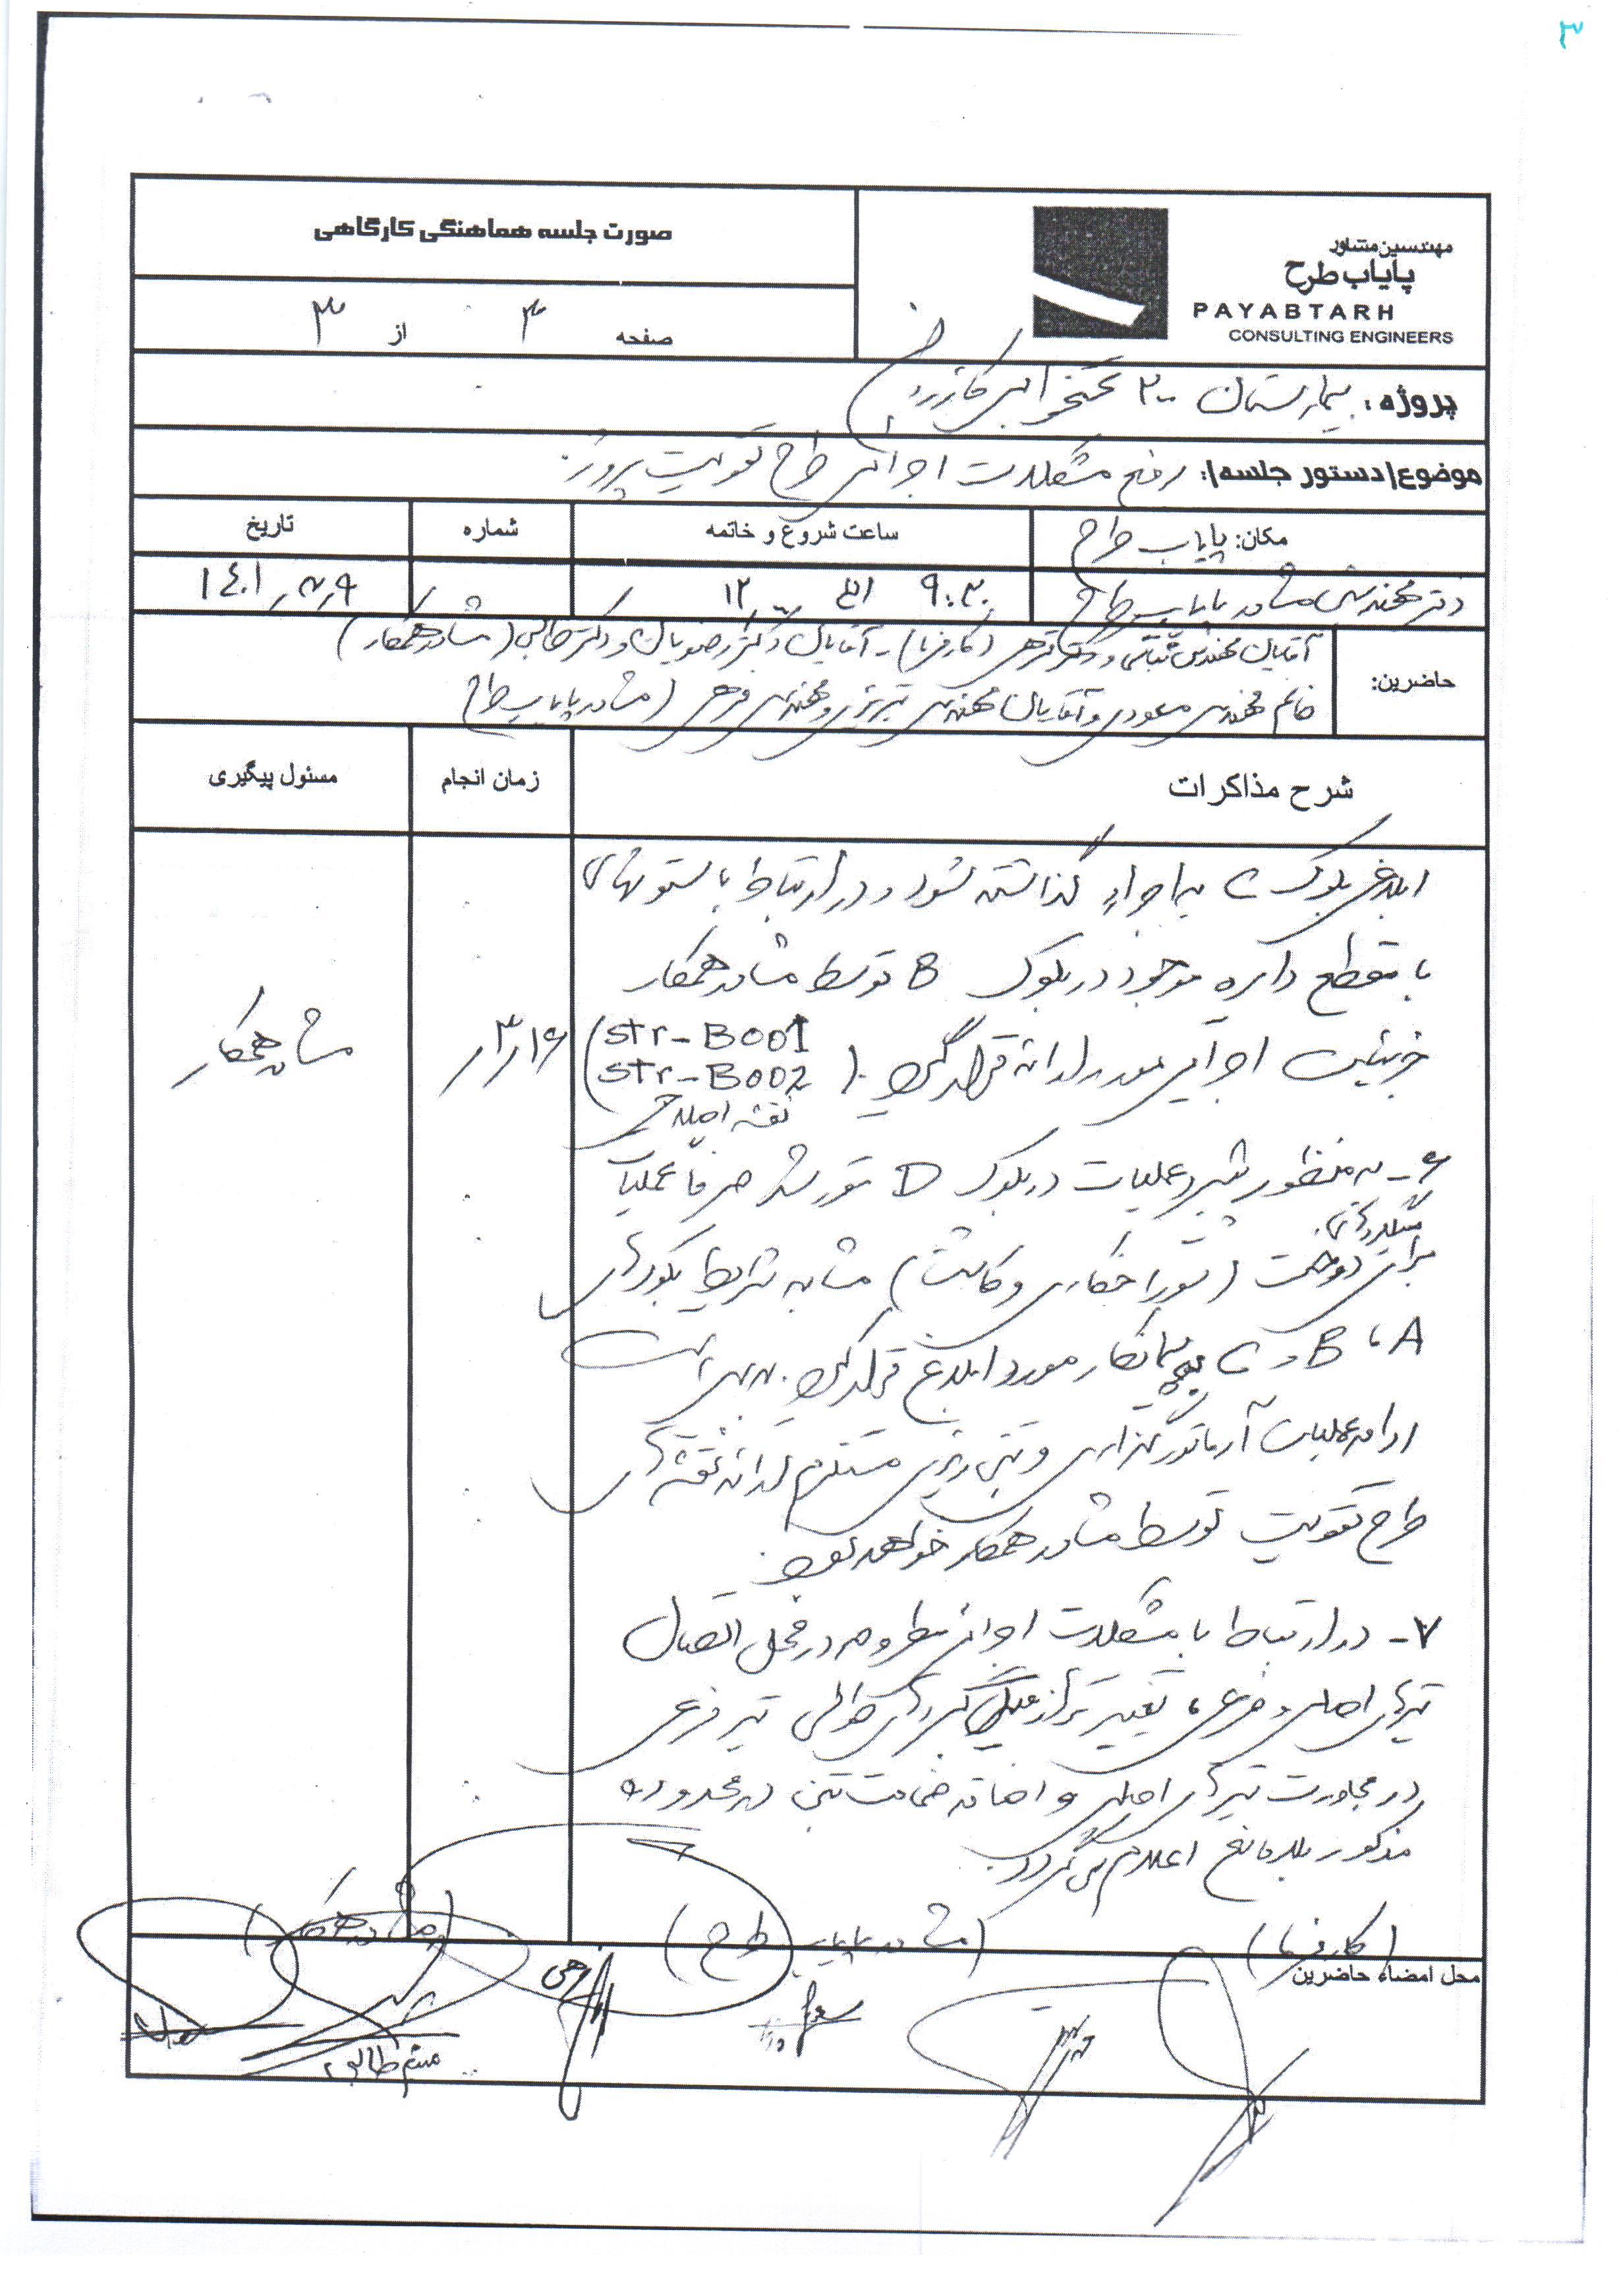 ۳
صورت جلسه هماهنگی کارگاهی
صفحه ۳ از ۳
مهندسین مشاور
پایاب طرح
PAYABTARH
CONSULTING ENGINEERS
پروژه: بیمارستان ۲۰۰ تختخوابی کازرون
موضوع(دستور جلسه): رفع مشکلات اجرائی طرح تقویت پروژه
مکان: پایاب طرح
ساعت شروع و خاتمه
شماره
تاریخ
دفتر مهندسی مشاور پایاب طرح
۹:۳۰ الی ۱۲
۱۴۰۱
حاضرین:
آقایان مهندس و دکتر (کارفرما) - آقایان دکتر رضویان و دکتر طالبی (مشاور همکار)
خانم مهندس و آقایان مهندس تبریزی و مهندس (مشاور پایاب طرح
شرح مذاکرات
زمان انجام
مسئول پیگیری
ابلاغی بلوک C به اجراء گذاشته شود و در ارتباط با ستونهای
با مقطع دایره موجود در بلوک B توسط مشاور همکار
جزئیات اجرایی مورد ارائه قرار گیرد. (str-B001
str-B002)
نقشه اصلاحی
۳٫۱۶
مشاور همکار
۶- به منظور پیشبرد عملیات در بلوک D مقرر شد صرفاً عملیات
برای دوخت (سوراخکاری و کاشت) مشابه شرایط بلوکهای
A، B و C به پیمانکار مورد ابلاغ قرار گیرد. بدیهی است
ادامه عملیات آرماتورگذاری و بتن ریزی مستلزم ارائه نقشه های
طرح تقویت توسط مشاور همکار خواهد بود.
۷- در ارتباط با مشکلات اجرائی مطروحه در محل اتصال
تیرهای اصلی و فرعی، تغییر تراز میلگردهای طولی تیر فرعی
در مجاورت تیرهای اصلی و اضافه ضخامت بتن در محدوده
مذکور بلامانع اعلام می گردد.
(کارفرما)
(مشاور پایاب طرح)
(مشاور همکار)
محل امضاء حاضرین
میثم طالبی